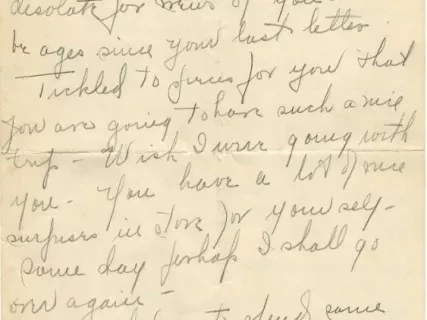 desolate for news of you -
be ages since your last letter.
Tickled to pieces for you that
you are going to have such a nice
trip - Wish I were going with
you - You have a lot of nice
surprises in store for yourself -
some day perhaps I shall go
over again -
to spend some